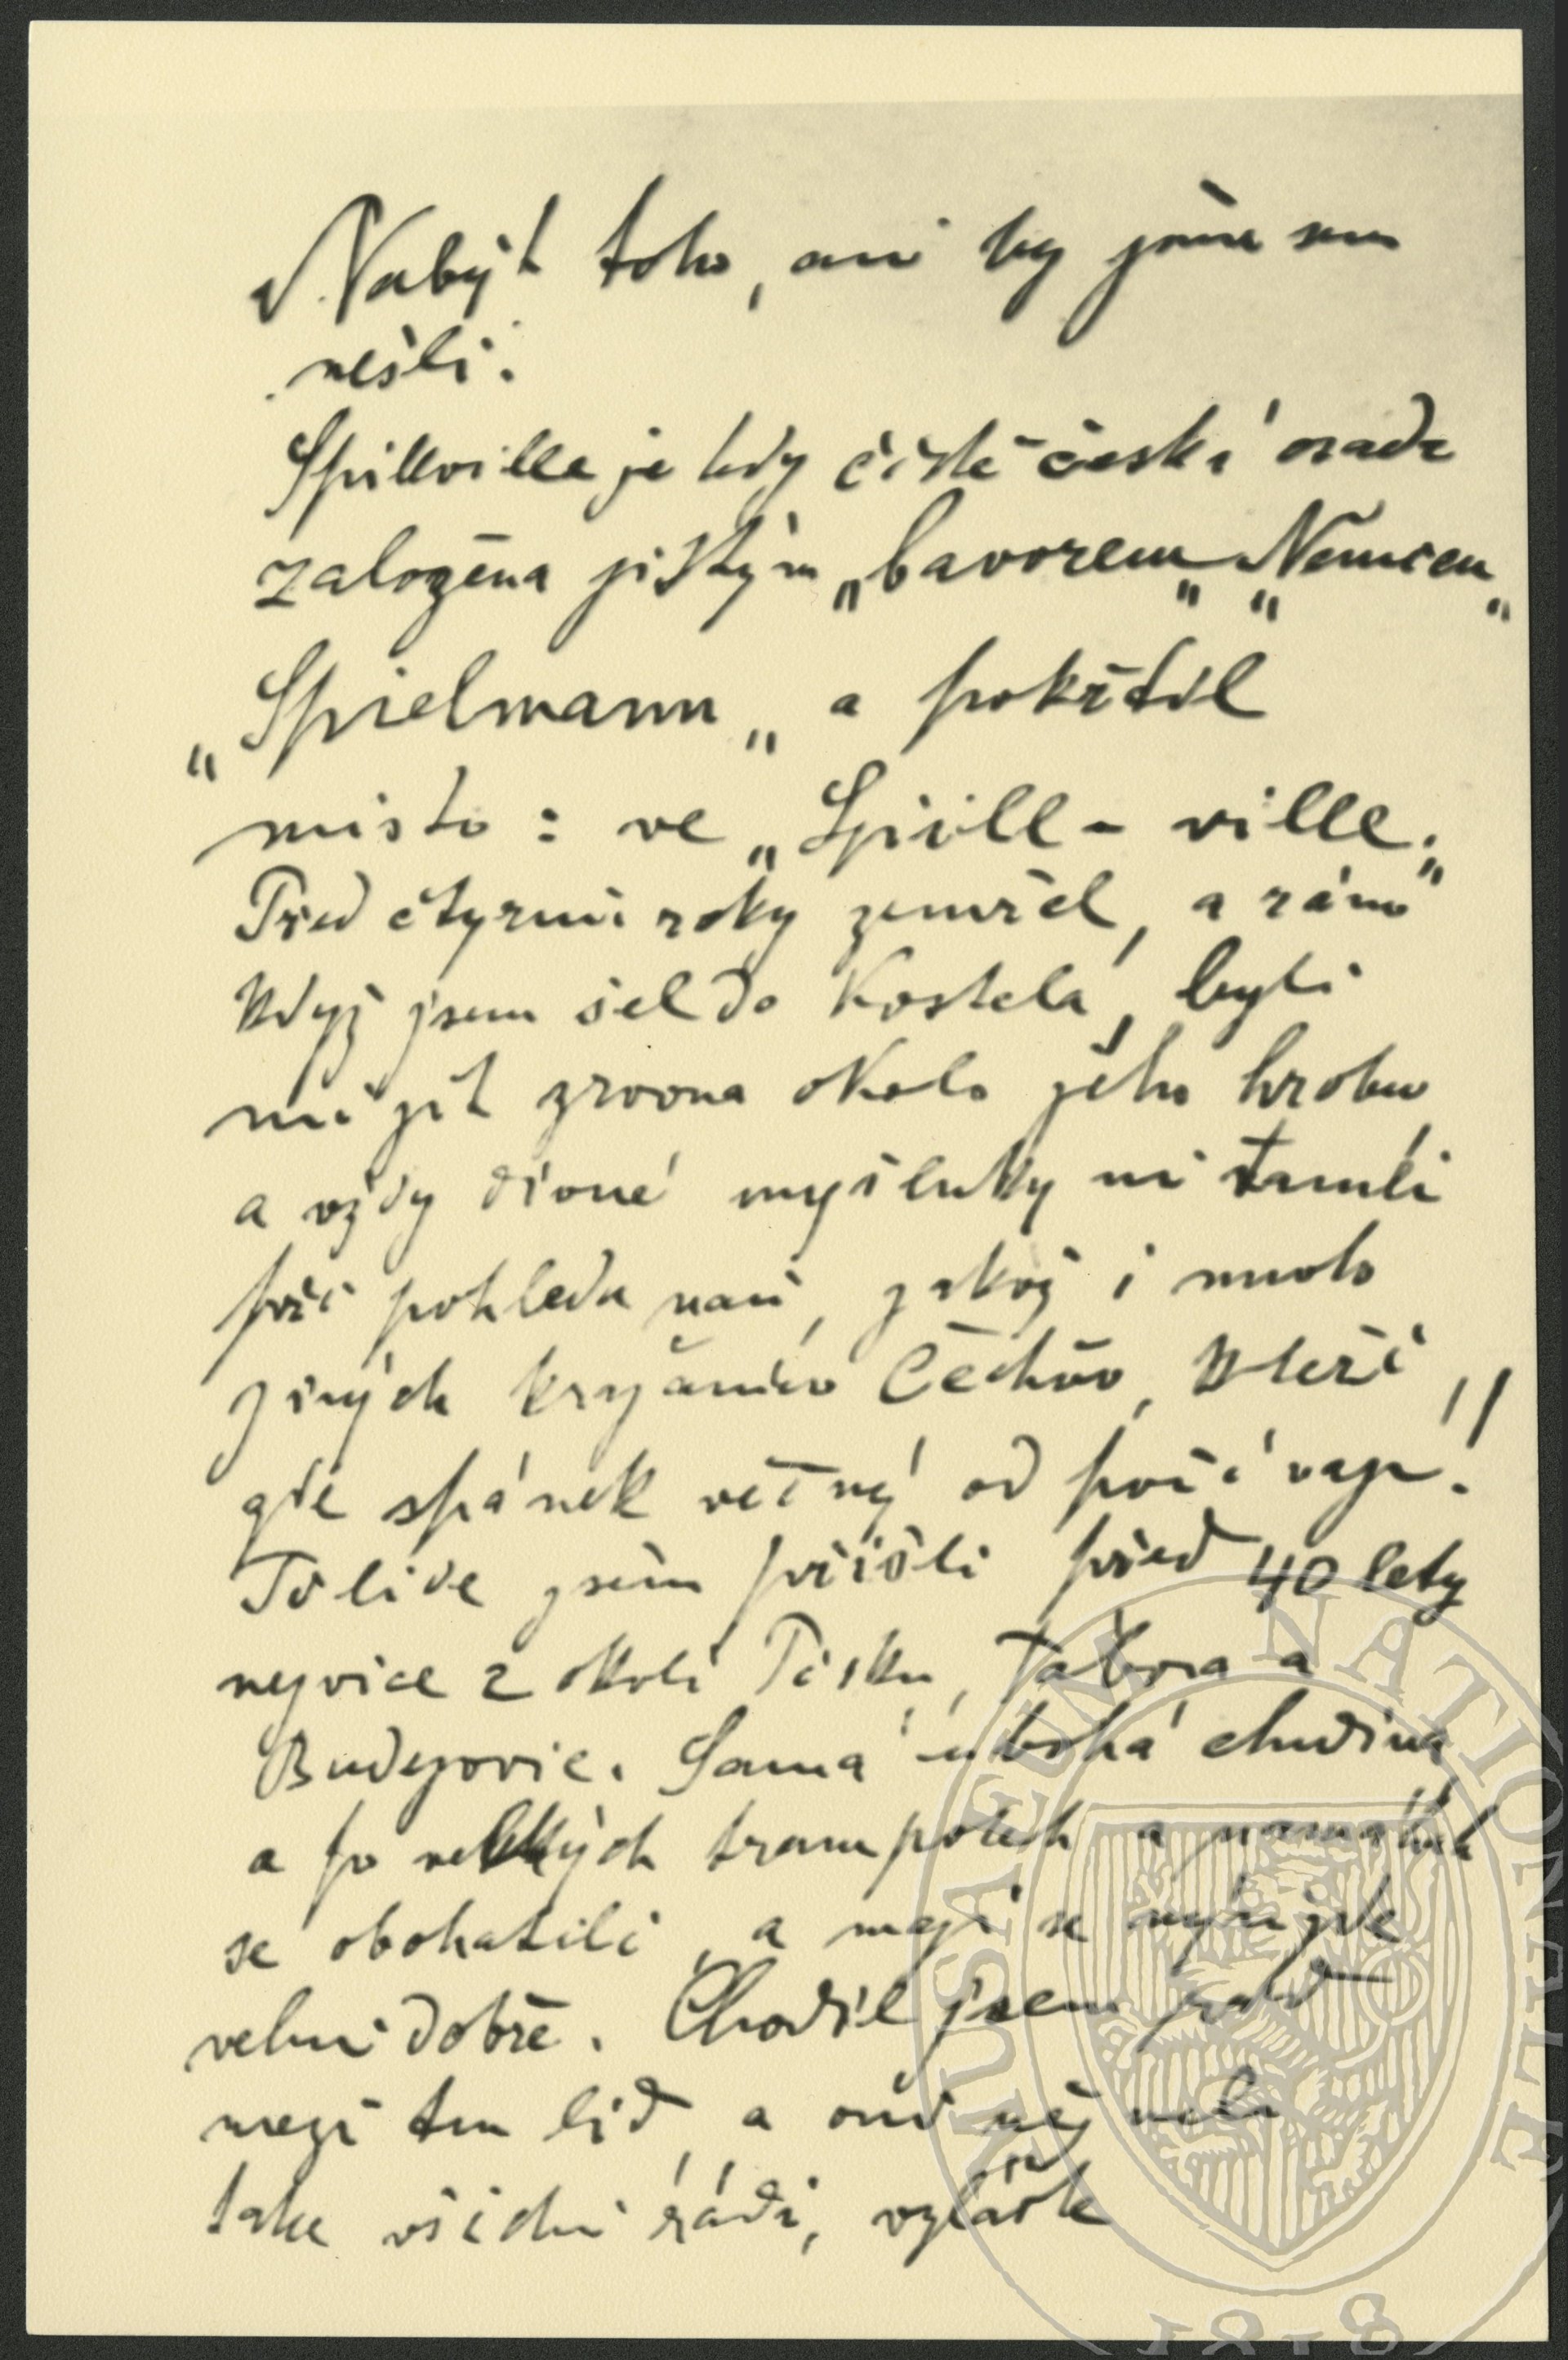 Nabýt toho, ani by jsme sem
nešli.
Spillville je tedy čistě česká osada
založena jistým „bavorem„ „Němcem„
„Spielmann„ a pokřtil
místo: ve „Spiill-ville.„
Před čtyrmi roky zemřel, a ráno
když jsem šel do kostela, byli
mi jít zrovna okolo jeho hrobu
a vždy divné myšlenky mi tanuli
při pohledu naň, jakož i mnoho
jiných krajanův Čechův, kteří
zde spánek věčný od počívají.
Ti lidé jsem přišli před 40 lety
nejvíce z okolí Písku, Tabora a
Budejovic. Samá úbohá chudina
a po velkých trampotech a namáhách
se obohatili, a mají se nyní zde
velmi dobře. Chodil jsem rád
mezi ten lid, a oni měj měli
take všichni rádi, vzláště
MUSAEUM NATIONALE
1818